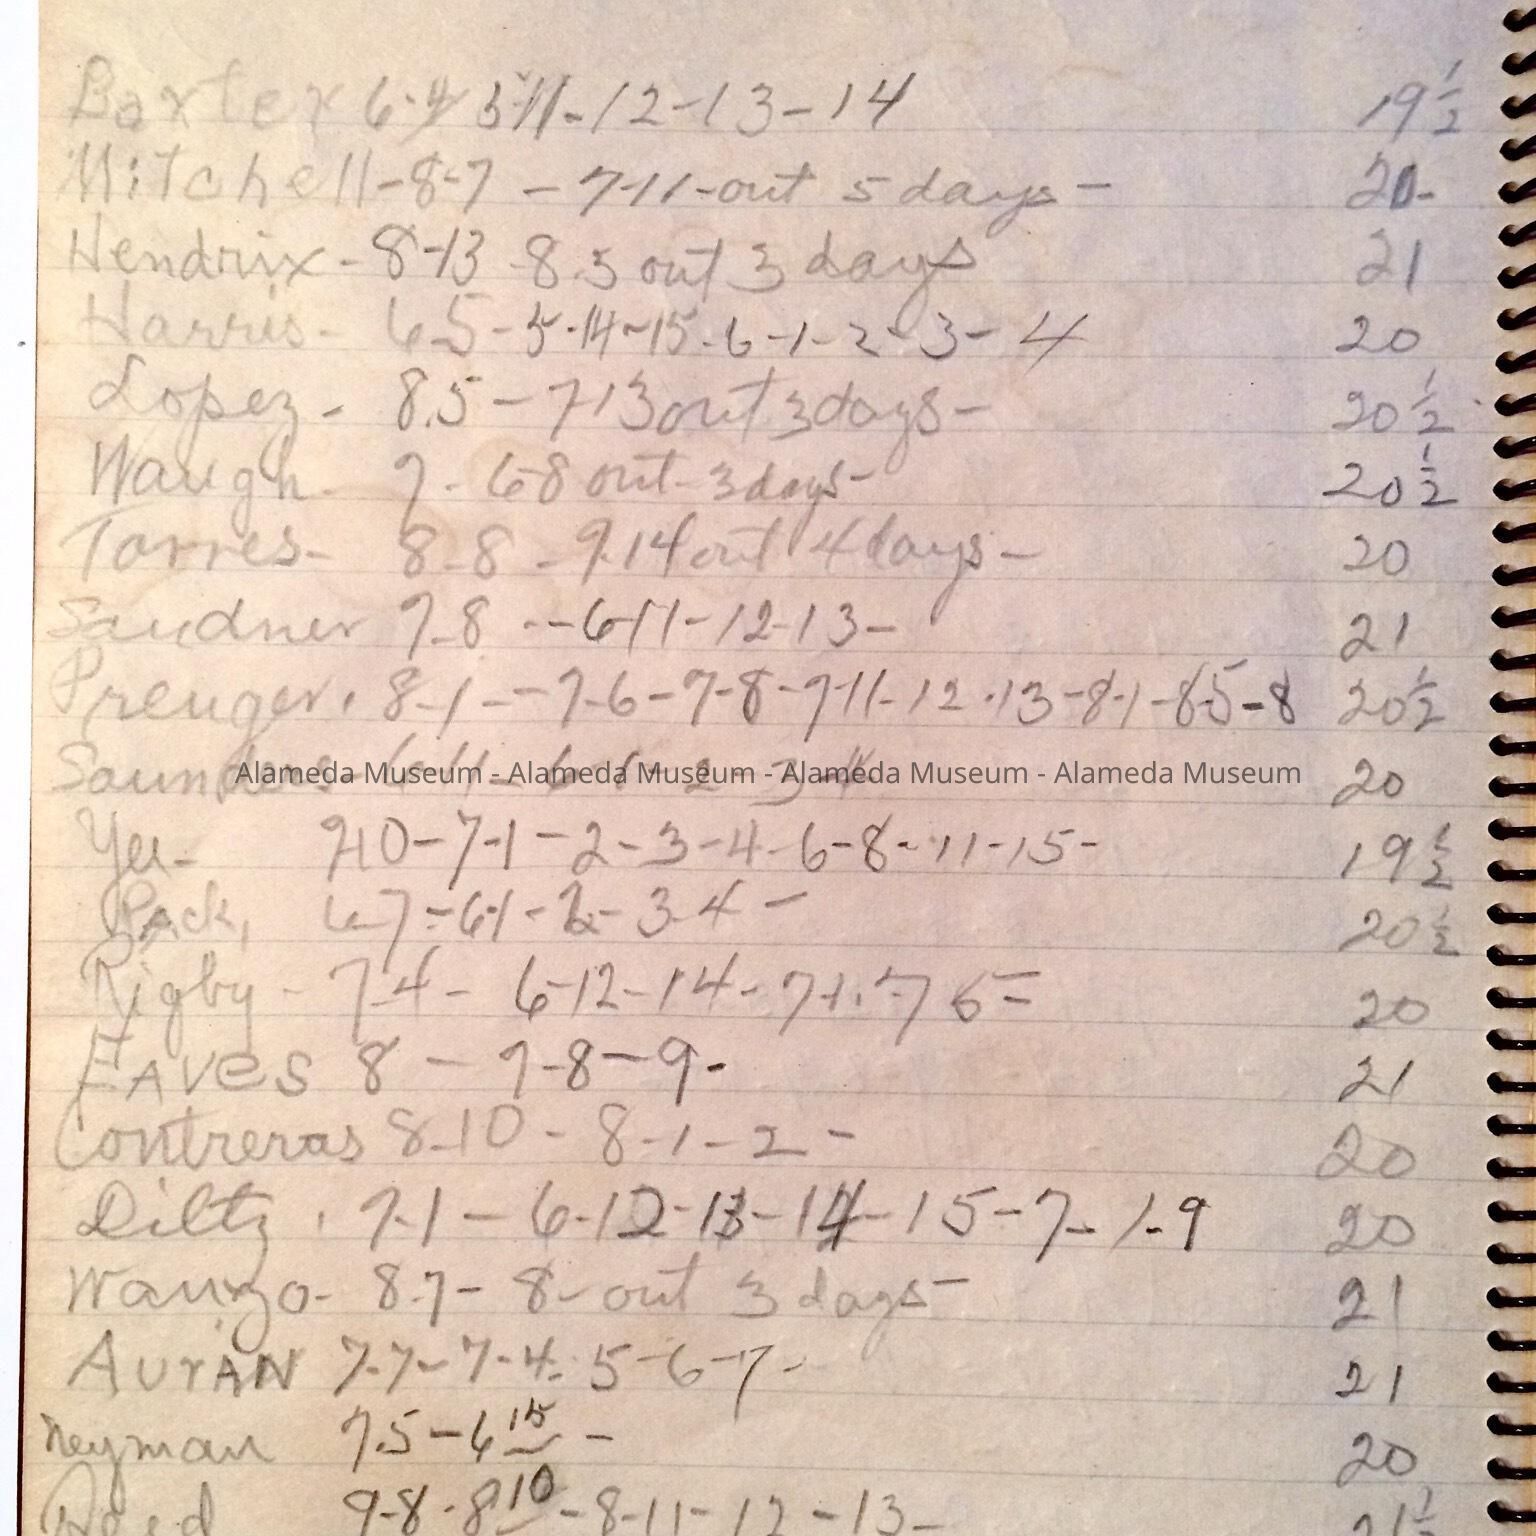 Baxter 6-4 5-11-12-13-14 19 1/2
Mitchell-8-7 - 7-11-out 5 days - 20-
Hendrix - 8-13 - 8.5 out 3 days 21
Harris - 6-5 - 5-14-15-6-1-2-3-4 20
Lopez - 8.5 - 7-13 out 3 days - 20 1/2
Waugh - 7 - 6-8 out - 3 days - 20 1/2
Torres - 8-8 - 9.14 out 4 days - 20
Saudner 7-8 - - 6-11-12-13- 21
Preuger. 8-1 - - 7-6-7-8-7-11-12-13-8-1-8-5-8 20 1/2
Saunders 20
Alameda Museum - Alameda Museum - Alameda Museum - Alameda Museum
Yee- 7-10-7-1-2-3-4-6-8-11-15- 19 1/2
Pack, 6-7-6-1-2-3-4 - 20 1/2
Rigby - 7-4 - 6-12-14-7-1-7 6 - 20
EAVeS 8 - 7-8-9- 21
Contreras 8-10 - 8-1-2 - 20
Diltz . 7-1 - 6-12-13-14-15-7-1-9 20
Wanzo- 8.7- 8- out 3 days- 21
AUrAN 7-7- 7-4. 5-6-7- 21
Neyman 7.5-6 15 - 20
9-8-8 10 -8-11-12-13- 21 1/2